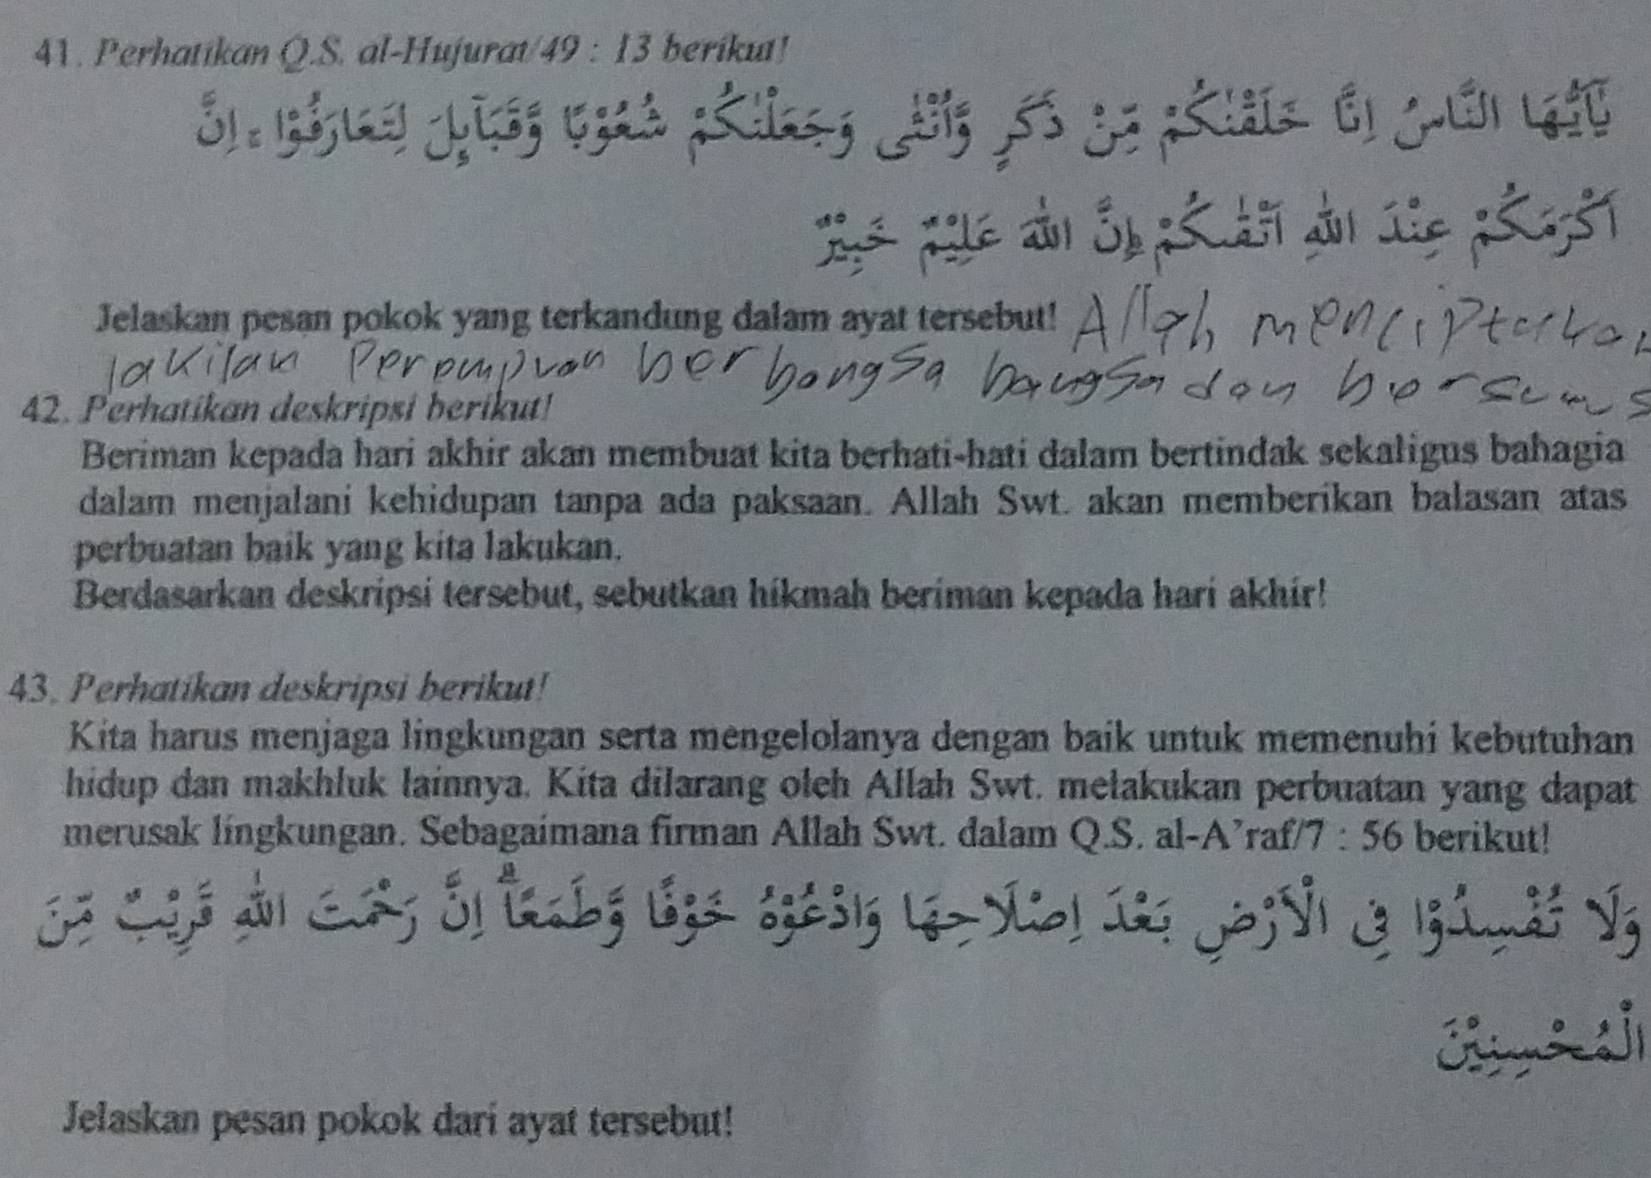 41. Perhatikan Q.S. al-Hujurat/49 : 13 berikut!
يٰٓاَيُّهَا النَّاسُ اِنَّا خَلَقْنٰكُمْ مِّنْ ذَكَرٍ وَّاُنْثٰى وَجَعَلْنٰكُمْ شُعُوْبًا وَّقَبَاۤىِٕلَ لِتَعَارَفُوْا ۚ اِنَّ
اَكْرَمَكُمْ عِنْدَ اللّٰهِ اَتْقٰىكُمْ ۗاِنَّ اللّٰهَ عَلِيْمٌ خَبِيْرٌ
Jelaskan pesan pokok yang terkandung dalam ayat tersebut! Allah menciptakan
lakilan Perempuan berbangsa bangsa dan
42. Perhatikan deskripsi berikut!
Beriman kepada hari akhir akan membuat kita berhati-hati dalam bertindak sekaligus bahagia
dalam menjalani kehidupan tanpa ada paksaan. Allah Swt. akan memberikan balasan atas
perbuatan baik yang kita lakukan.
Berdasarkan deskripsi tersebut, sebutkan hikmah beriman kepada hari akhir!
43. Perhatikan deskripsi berikut!
Kita harus menjaga lingkungan serta mengelolanya dengan baik untuk memenuhi kebutuhan
hidup dan makhluk lainnya. Kita dilarang oleh Allah Swt. melakukan perbuatan yang dapat
merusak lingkungan. Sebagaimana firman Allah Swt. dalam Q.S. al-A’raf/7 : 56 berikut!
وَلَا تُفْسِدُوْا فِى الْاَرْضِ بَعْدَ اِصْلَاحِهَا وَادْعُوْهُ خَوْفًا وَّطَمَعًاۗ اِنَّ رَحْمَتَ اللّٰهِ قَرِيْبٌ مِّنَ
الْمُحْسِنِيْنَ
Jelaskan pesan pokok dari ayat tersebut!